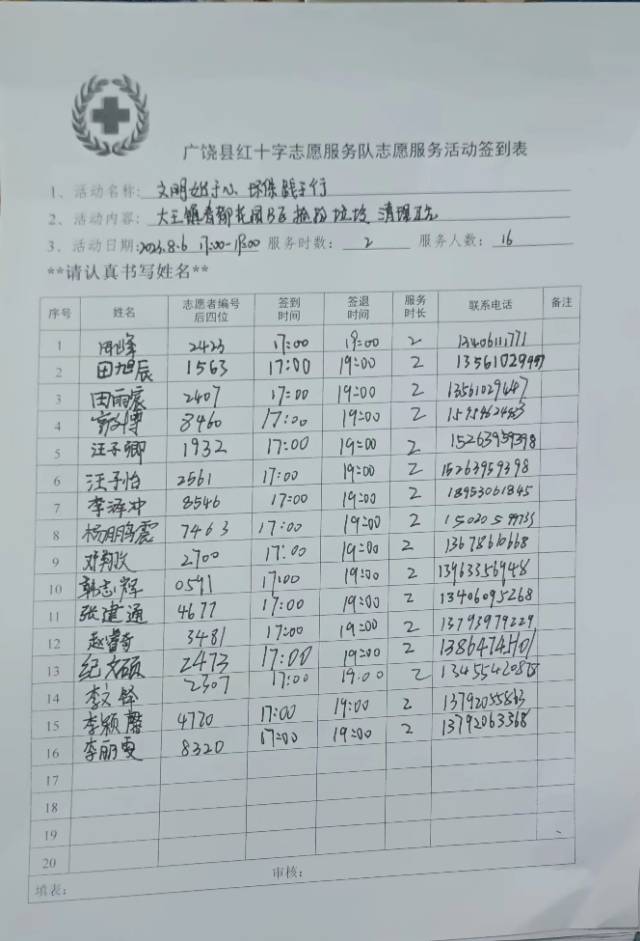 广饶县红十字志愿服务队志愿服务活动签到表
1、活动名称: 文明始于心 环保践于行
2、活动内容: 大王镇香都花园B区 捡拾垃圾 清理
3、活动日期: 2023.8.6 17:00-19:00 服务时数: 2 服务人数: 16
**请认真书写姓名**
序号 姓名 志愿者编号后四位 签到时间 签退时间 服务时长 联系电话 备注
1 周峰 2423 17:00 19:00 2 13406111771
2 田旭辰 1563 17:00 19:00 2 13561029447
3 田丽宸 2407 17:00 19:00 2 13561029447
4 8460 17:00 19:00 2
5 汪子卿 1932 17:00 19:00 2 15263959398
6 汪子怡 2561 17:00 19:00 2 15263959398
7 李泽冲 8546 17:00 19:00 2 18953061845
8 杨朋震 7463 17:00 19:00 2
9 邓翔天 2700 17:00 19:00 2 13678610668
10 韩志辉 0591 17:00 19:00 2 13963356948
11 张建通 4677 17:00 19:00 2 13406095268
12 赵睿奇 3481 17:00 19:00 2 13793979229
13 纪文硕 2473 17:00 19:00 2
14 李文锋 2307 17:00 19:00 2
15 李颖馨 4720 17:00 19:00 2 13792055863
16 李丽雯 8320 17:00 19:00 2 13792063368
17
18
19
20
填表: 审核: